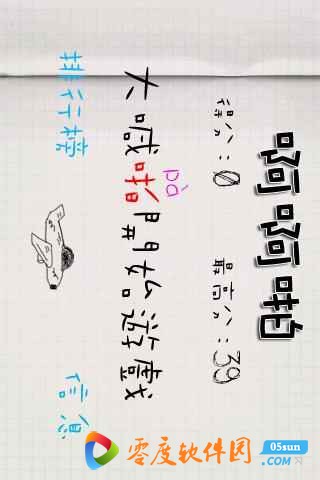 啊啊啪
得分:0 最高分:39
pa
大喊啪開始游戲
排行榜 信息
零度软件园
05sun
.COM